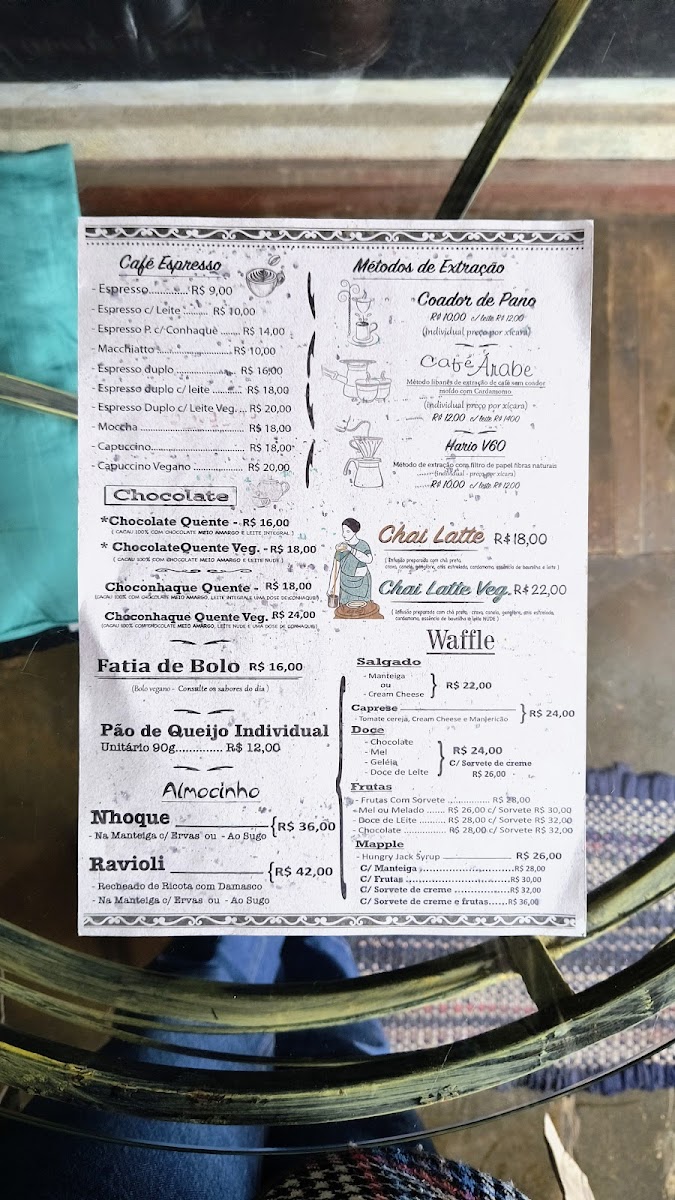 Café Espresso
- Espresso............. R$ 9,00
- Espresso c/ Leite ......... R$ 10,00
- Espresso P. c/ Conhaque ....... R$ 14,00
- Macchiatto ......................... R$ 10,00
- Espresso duplo .................. R$ 16,00
- Espresso duplo c/ leite ........... R$ 18,00
- Espresso Duplo c/ Leite Veg. ... R$ 20,00
- Moccha .............................. R$ 18,00
- Capuccino............................... R$ 18,00
- Capuccino Vegano .................. R$ 20,00
Chocolate
*Chocolate Quente - R$ 16,00
( CACAU 100% COM CHOCOLATE MEIO AMARGO E LEITE INTEGRAL )
* ChocolateQuente Veg. - R$ 18,00
( CACAU 100% COM CHOCOLATE MEIO AMARGO E LEITE NUDE )
Choconhaque Quente - R$ 18,00
(CACAU 100% COM CHOCOLATE MEIO AMARGO, LEITE INTEGRAL E UMA DOSE DE CONHAQUE)
Choconhaque Quente Veg. R$ 24,00
(CACAU 100% COM CHOCOLATE MEIO AMARGO, LEITE NUDE E UMA DOSE DE CONHAQUE)
Fatia de Bolo R$ 16,00
(Bolo vegano - Consulte os sabores do dia )
Pão de Queijo Individual
Unitário 90g.............. R$ 12,00
Almocinho
Nhoque {R$ 36,00
- Na Manteiga c/ Ervas ou - Ao Sugo
Ravioli {R$ 42,00
Recheado de Ricota com Damasco
- Na Manteiga c/ Ervas ou - Ao Sugo
Métodos de Extração
Coador de Pano
R$ 10,00 c/ leite R$ 12,00
(Individual preço por xícara)
Café Árabe
Método libanês de extração de café sem coador
moído com Cardamomo
(individual preço por xícara)
R$ 12,00 c/ leite R$ 14,00
Hario V60
Método de extração com filtro de papel fibras naturais
.......(Individual - preço por xícara)
......R$ 10,00 c/ leite R$ 12,00
Chai Latte R$18,00
( Infusão preparada com chá preto,
cravo, canela, gengibre, anis estrelado, cardamomo, essência de baunilha e leite )
Chai Latte Veg. R$22,00
( Infusão preparada com chá preto, cravo, canela, gengibre, anis estrelado,
cardamomo, essência de baunilha e leite NUDE )
Waffle
Salgado
- Manteiga
ou
- Cream Cheese } R$ 22,00
Caprese } R$ 24,00
- Tomate cereja, Cream Cheese e Manjericão
Doce
- Chocolate
- Mel
- Geléia
- Doce de Leite
R$ 24,00
C/ Sorvete de creme
R$ 26,00
Frutas
- Frutas Com Sorvete ............... R$ 28,00
- Mel ou Melado ....... R$ 26,00 c/ Sorvete R$ 30,00
- Doce de LEite ......... R$ 28,00 c/ Sorvete R$ 32,00
- Chocolate ............... R$ 28,00 c/ Sorvete R$ 32,00
Mapple
- Hungry Jack Syrup R$ 26,00
C/ Manteiga ..............................R$ 28,00
C/ Frutas ...................................R$ 30,00
C/ Sorvete de creme ..................R$ 32,00
C/ Sorvete de creme e frutas......R$ 36,00